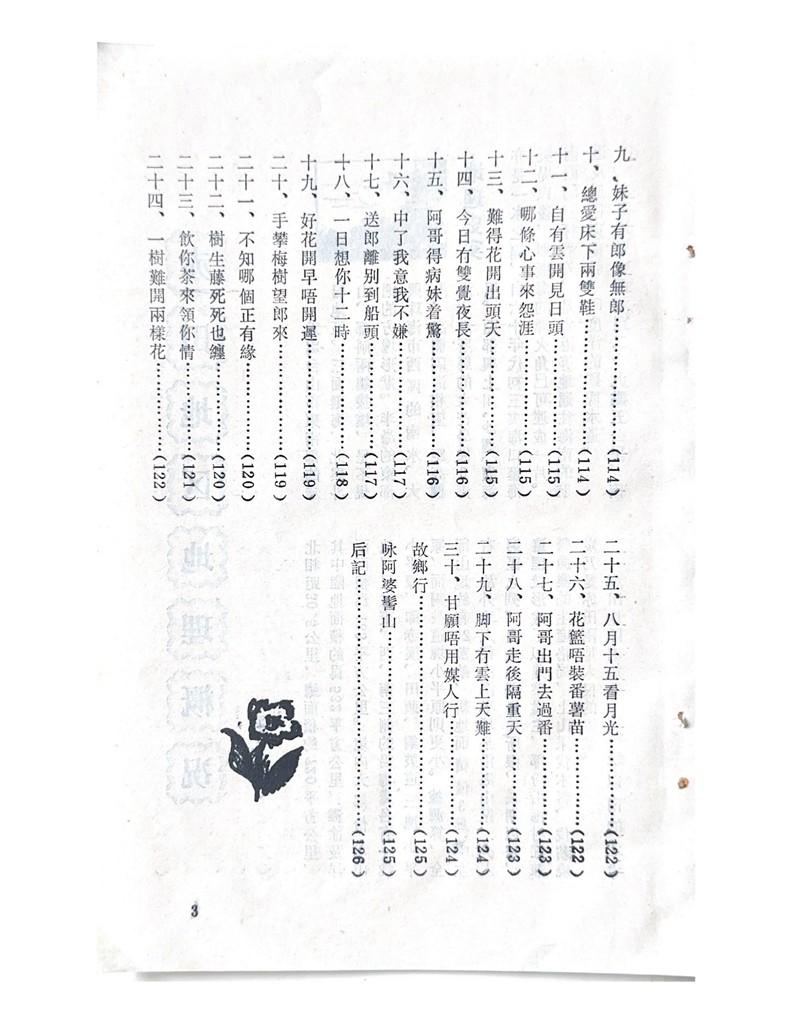 九、妹子有郎像無郎……………(114)
十、總愛床下兩雙鞋……………(114)
十一、自有雲開見日頭……………(115)
十二、哪條心事來怨涯……………(115)
十三、難得花開出頭天……………(115)
十四、今日冇雙覺夜長……………(116)
十五、阿哥得病妹着驚……………(116)
十六、中了我意我不嫌……………(117)
十七、送郎離别到船頭……………(117)
十八、一日想你十二時……………(118)
十九、好花開早唔開遲……………(119)
二十、手攀梅樹望郎來……………(119)
二十一、不知哪個正有緣……………(120)
二十二、樹生藤死死也纏……………(120)
二十三、飲你茶來領你情……………(121)
二十四、一樹難開兩樣花……………(122)
二十五、八月十五看月光……………(122)
二十六、花籃唔裝番薯苗……………(122)
二十七、阿哥出門去過番……………(123)
二十八、阿哥走後隔重天……………(123)
二十九、脚下有雲上天難……………(124)
三十、甘願唔用媒人行……………(124)
故鄉行……………(125)
咏阿婆髻山……………(125)
后記……………(126)
3